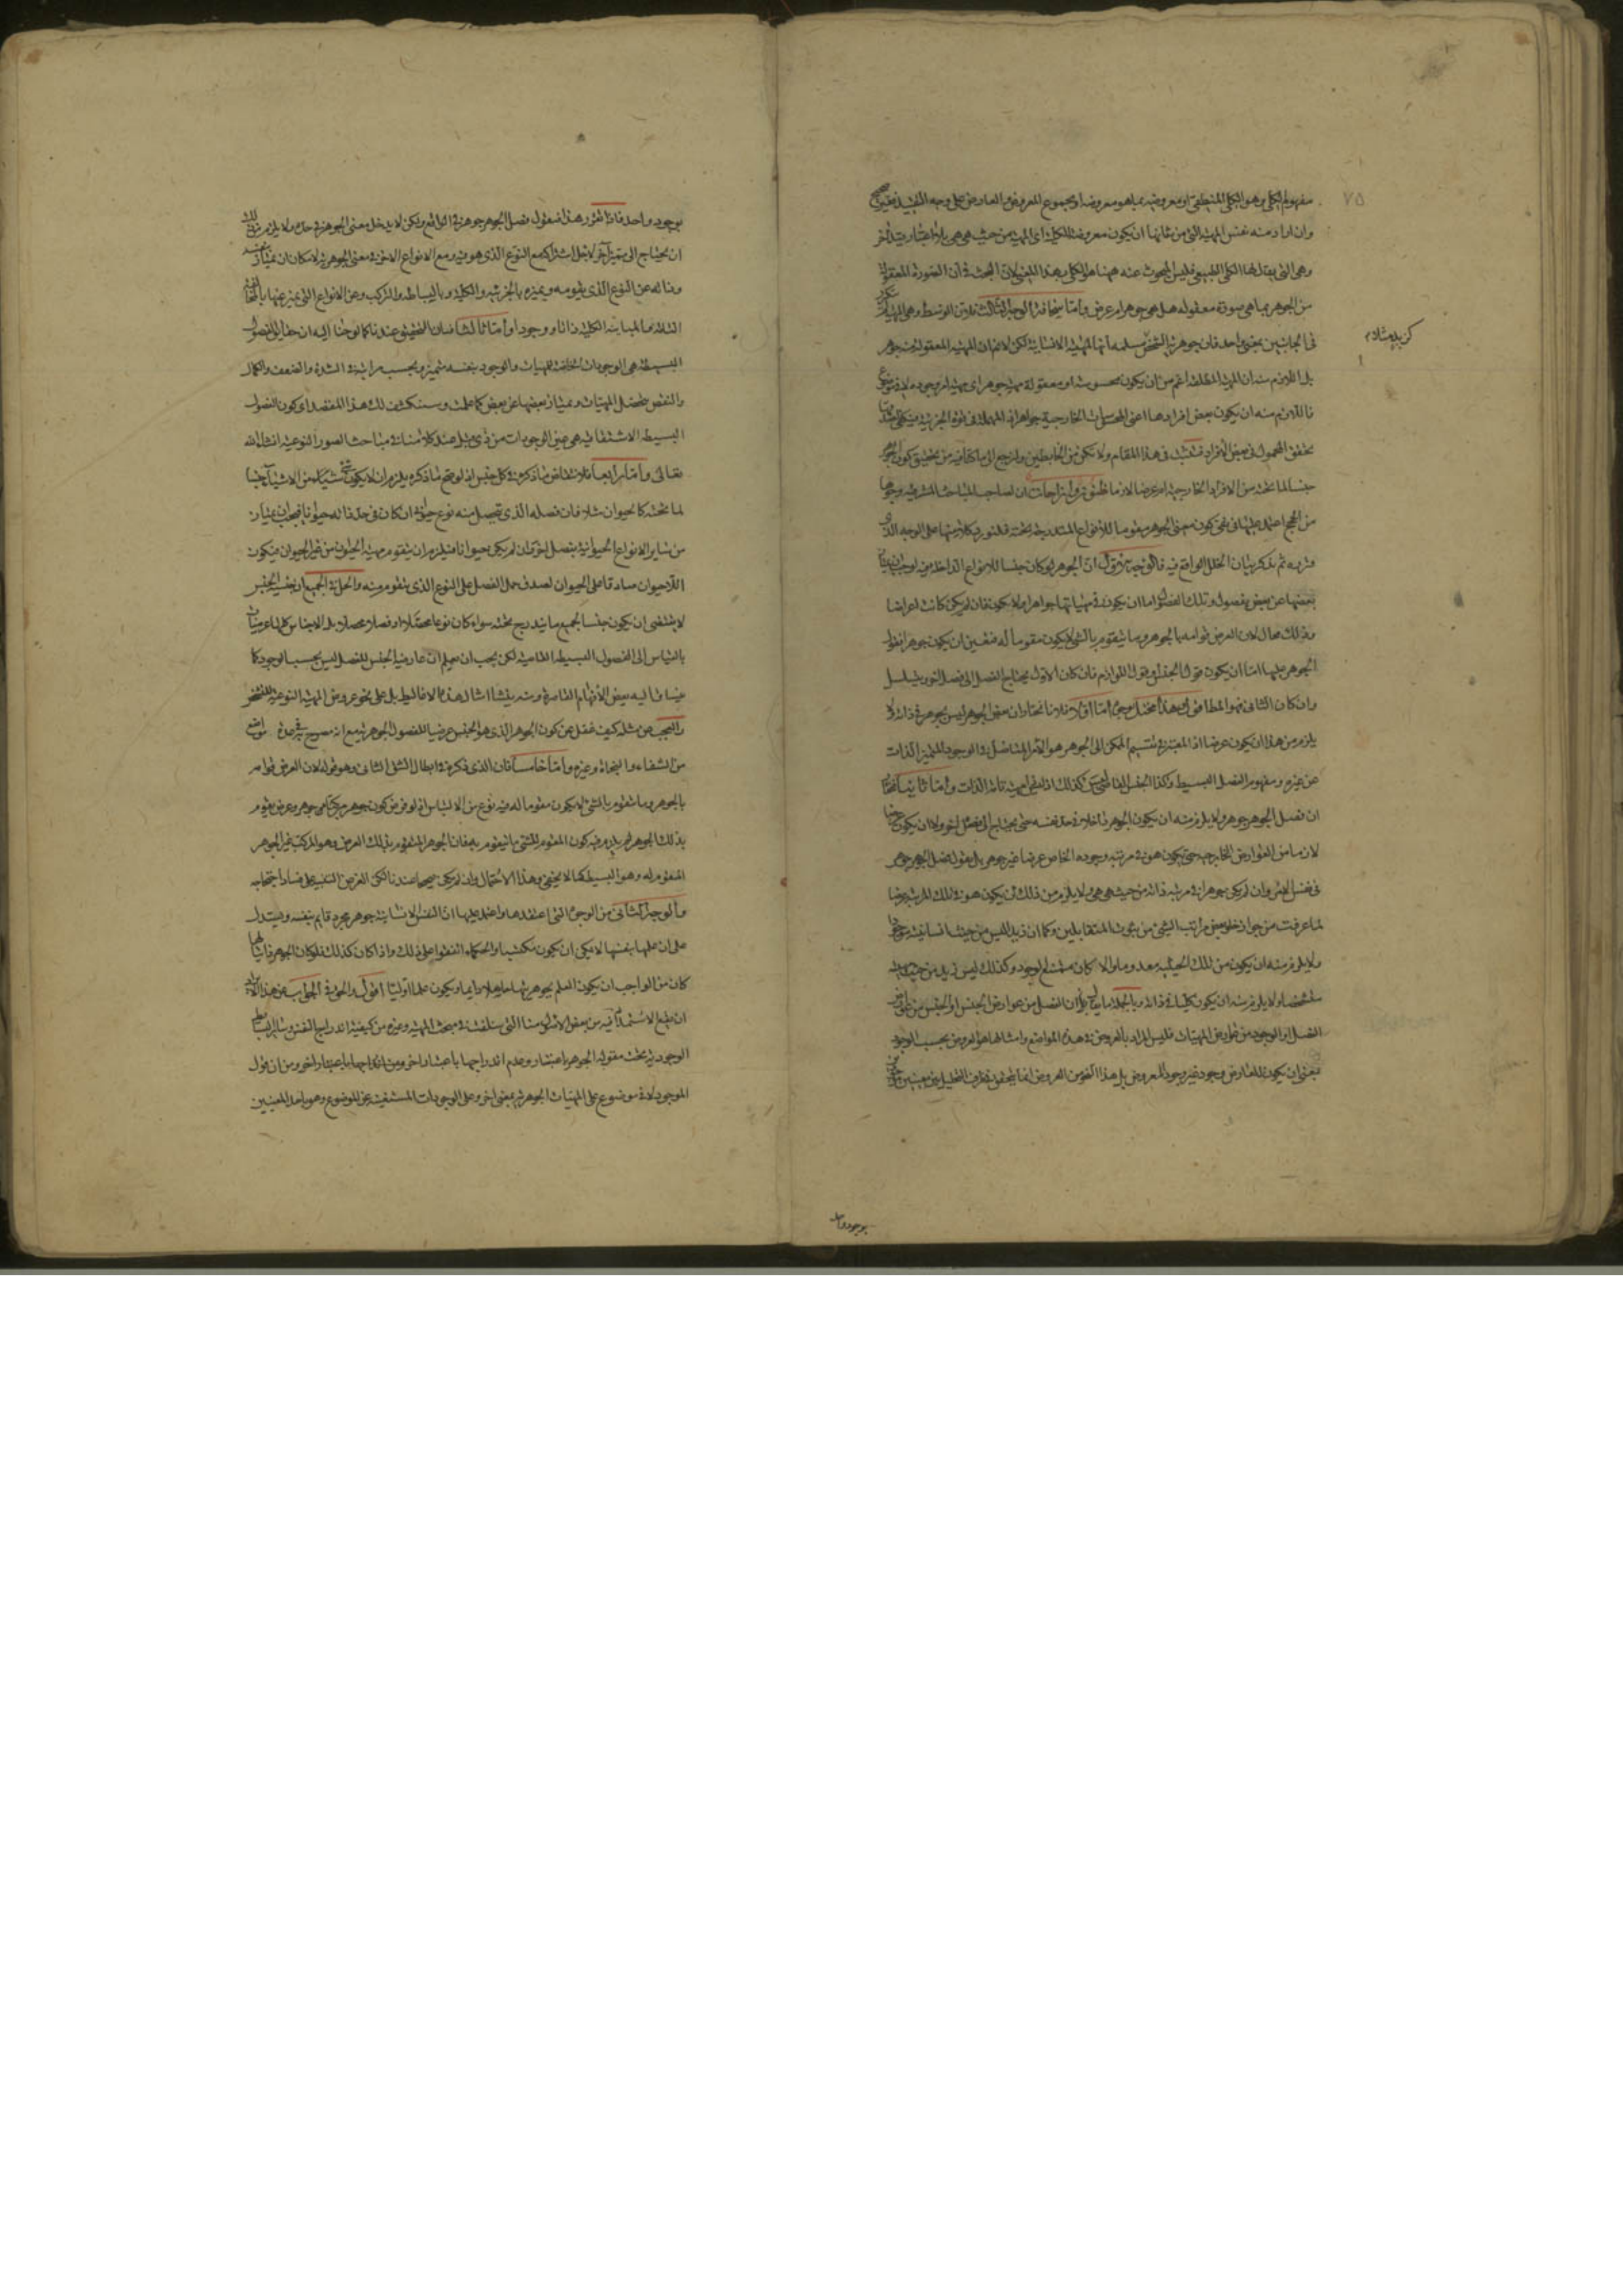 مفهوم الكلي وهو الكلي المنطقي او معروضه بما هو معروضه او مجموع المعروض والعارض على وجه التقييد فغير صحيح
وان اراد منه نفس المهية التي من شانها ان يكون معروضة للكلية اى المهية من حيث هي هي بلا اعتبار قيد آخر
وهي التي يقال لها الكلي الطبيعي فليس المبحوث عنه ههنا هو الكلي بهذا المعنى لان البحث في ان الصورة المعقولة
من الجوهر بما هي صورة معقوله هل هي جوهر ام عرض واما سخافة الوجه الثالث فلان الوسط وهي المهية
في الجانبين بمعنى واحد فان جوهرية الشخص مسلمة انها المهية الانسانية لكن لانم ان المهية المعقولة منه جوهر
بل اللازم منه ان المهية المطلقة اعم من ان يكون محسوسة او معقولة مهية جوهر اى مهية امر وجوده لا في موضوع
فاللازم منه ان يكون بعض افرادها اعنى المحسوسات الخارجية جواهر اذ المهملة في قوة الجزئية فيكفي لصدقها
تحقق المحمول في بعض الافراد فتثبت في هذا المقام ولا تكن من الخابطين ولنرجع الى ما كنا فيه من تحقيق كون الجوهر
جنسا لما تحته من الافراد الخارجية ام عرضا لازما ان لصاحب المباحث المشرقية وجوها
من الحجج اعتمد عليها في نفي كون معنى الجوهر مقوما للانواع المندرجة تحته فلنورد كلا منها على الوجه الذي
قرره ثم نذكر بيان الخلل الواقع فيه فالوجه الاول ان الجوهر لو كان جنسا للانواع الداخلة فيه لوجب ان يمتاز
بعضها عن بعض بفصول وتلك الفصول اما ان يكون في مهياتها جواهر او لا يكون فان لم يكن كانت اعراضا
وذلك محال لان العرض قوامه بالجوهر وما يتقوم بالشئ لا يكون مقوما له فتعين ان يكون جوهرا فقول
الجوهر عليها اما ان يكون قول الجنس او قول اللوازم فان كان الاول يحتاج الفصل الى فصل آخر ويتسلسل
وان كان الثاني فهو المط اقول هذا مختل بوجوه اما اولا فلانا نختار ان معنى الجوهر ليس بجوهر في ذاته ولا
يلزم من هذا ان يكون عرضا اذ المعتبر في تقسيم الممكن الى الجوهر هو الامر المتاصل في الوجود المتميز الذات
عن غيره ومفهوم الفصل البسيط وكذا الجنس القاصى كذلك اذ ليس لهما مهية تامة الذات واما ثانيا فنختار
ان فصل الجوهر جوهر ولا يلزم منه ان يكون الجوهر داخلا في حد نفسه حتى يحتاج الى فصل آخر ولا ان يكون عرضا
لازما من العوارض الخارجية حتى يكون هو في مرتبة وجوده الخاص عرضا غير جوهر بل نقول فصل الجوهر جوهر
في نفس الامر وان لم يكن جوهرا في مرتبة ذاته من حيث هي هي ولا يلزم من ذلك ان يكون هو في تلك المرتبة عرضا
لما عرفت من جواز خلو بعض مراتب الشئ من ثبوت المتقابلين وكما ان زيدا ليس من حيث انسانيته موجودا
ولا يلزم منه ان يكون من تلك الحيثية معدوما والا لكان ممتنع الوجود وكذلك ليس زيد من حيث مهيته
متشخصا ولا يلزم منه ان يكون كليا في ذاته وبالجملة ما يقال ان الفصل من عوارض الجنس او الجنس من عوارض
الفصل او الوجود من عوارض المهيات فليس المراد بالعروض في هذه المواضع وامثالها هو العروض بحسب الوجود
بمعنى ان يكون للعارض وجود غير وجود المعروض بل هذا النحو من العروض انما يتحقق في ظرف التحليل بين معنيين موجودين
بوجود واحد فاذا تقرر هذا فنقول فصل الجوهر جوهر في الواقع ولكن لا يدخل معنى الجوهر في حده ولا يلزم من ذلك
ان يحتاج الى مميز آخر لاجل اشتراكه مع النوع الذي هو فيه ومع الانواع الاخر في معنى الجوهرية لامكان ان يمتاز بنفسه
وذاته عن النوع الذي يقومه ويميزه بالجزئية والكلية وبالبساطة والتركيب وعن الانواع التي يميز عنها بالمخالفة
التامة والمباينة الكلية ذاتا ووجودا واما ثالثا فان التحقيق عندنا كما لوحنا اليه ان حقايق الفصول
البسيطة هي الوجودات الخاصة للمهيات والوجود بنفسه متميز وبحسب مراتبه في الشدة والضعف والكمال
والنقص يتحصل المهيات ويمتاز بعضها عن بعض كما علمت وسينكشف لك هذا المقصد اى كون الفصول
البسيطة الاشتقاقية هي عين الوجودات من ذي قبل عند كلامنا في مباحث الصور النوعية انشاء الله
تعالى واما رابعا فلانتقاض ما ذكره في كل جنس اذ لو صح ما ذكره يلزم ان لا يكون شئ من الاشياء جنسا
لما تحته كالحيوان مثلا فان فصله الذي يتحصل منه نوع حيوانى ان كان في حد ذاته حيوانا فيجب ان يمتاز
من ساير الانواع الحيوانية بفصل آخر وان لم يكن حيوانا فيلزم ان يتقوم مهية الحيوان من غير الحيوان فيكون
اللاحيوان صادقا على الحيوان لصدق حمل الفصل على النوع الذي يتقوم منه والحل في الجميع ان نفس الجنس
لا يقتضي ان يكون جنسا لجميع ما يندرج تحته سواء كان نوعا محصلا او فصلا محصلا بل الاجناس كلها عرضيات
بالقياس الى الفصول البسيطة القاصية لكن يجب ان يعلم ان عارضية الجنس للفصل ليس بحسب الوجود كما
ينساق اليه بعض الافهام القاصرة ومنه ينشا امثال هذه الاغاليط بل على نحو عروض المهية النوعية للتشخص
والعجب من مثله كيف غفل عن كون الجوهر الذي هو الجنس عرضيا للفصول الجوهرية مع انه مصرح به في عدة مواضع
من الشفاء والنجاة وغيره واما خامسا فان الذي ذكره في ابطال الشق الثاني وهو قوله لان العرض قوامه
بالجوهر وما يتقوم بالشئ لا يكون مقوما له فيه نوع من الالتباس اذ لو فرض كون جوهر مركبا من جوهر وعرض يقوم
بذلك الجوهر لم يلزم منه كون المتقوم بالشئ ما يتقوم به فان الجوهر المتقوم بذلك العرض وهو المركب غير الجوهر
المقوم له وهو البسيط كما لا يخفى وهذا الاحتمال وان لم يكن صحيحا عندنا لكن الغرض التنبيه على فساد احتجاجه
والوجه الثاني من الوجوه التي اعتقدها واعتمد عليها ان النفس الانسانية جوهر مجرد قايم بنفسه ويستدل
على ان علمها بنفسها لا يمكن ان يكون مكتسبا والحكماء اتفقوا على ذلك واذا كان كذلك فلو كان الجوهر ذاتيا لها
كان من الواجب ان يكون العلم بجوهريتها حاصلا دايما ويكون علما اوليا اقول والحق في الجواب عن هذا الايراد
ان طبع الاستمداد فيه من بعض الاصول منا التي سلفت في مبحث المهية وغيره من كيفية اندراج النفس وساير البسايط
الوجودية تحت مقولة الجوهر باعتبار وعدم اندراجها باعتبار آخر ومن اندراجها باعتبار آخر ومن ان قول
الموجود لا في موضوع على المهيات الجوهرية بمعنى آخر وعلى الوجودات المستغنية عن الموضوع وهو باحد المعنيين